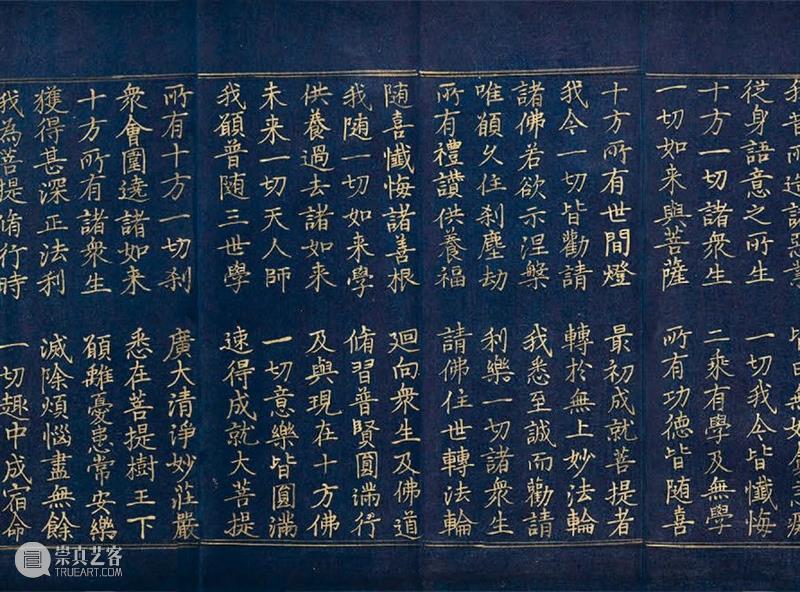 我昔所造諸惡業 皆由無始貪恚癡
從身語意之所生 一切我今皆懺悔
十方一切諸衆生 二乘有學及無學
一切如来與菩薩 所有功德皆随喜
十方所有世間燈 最初成就菩提者
我今一切皆勸請 轉於無上妙法輪
諸佛若欲示涅槃 我悉至誠而勸請
唯願久住刹塵劫 利樂一切諸衆生
所有禮讃供養福 請佛住世轉法輪
随喜懺悔諸善根 迴向衆生及佛道
我随一切如来學 脩習普賢圓滿行
供養過去諸如来 及與現在十方佛
未来一切天人師 一切意樂皆圓滿
我願普随三世學 速得成就大菩提
所有十方一切刹 廣大清淨妙莊嚴
衆會圍遶諸如来 悉在菩提樹王下
十方所有諸衆生 願離憂患常安樂
獲得甚深正法利 滅除煩惱盡無餘
我為菩提脩行時 一切趣中成宿命
崇真艺客
TRUEART.COM